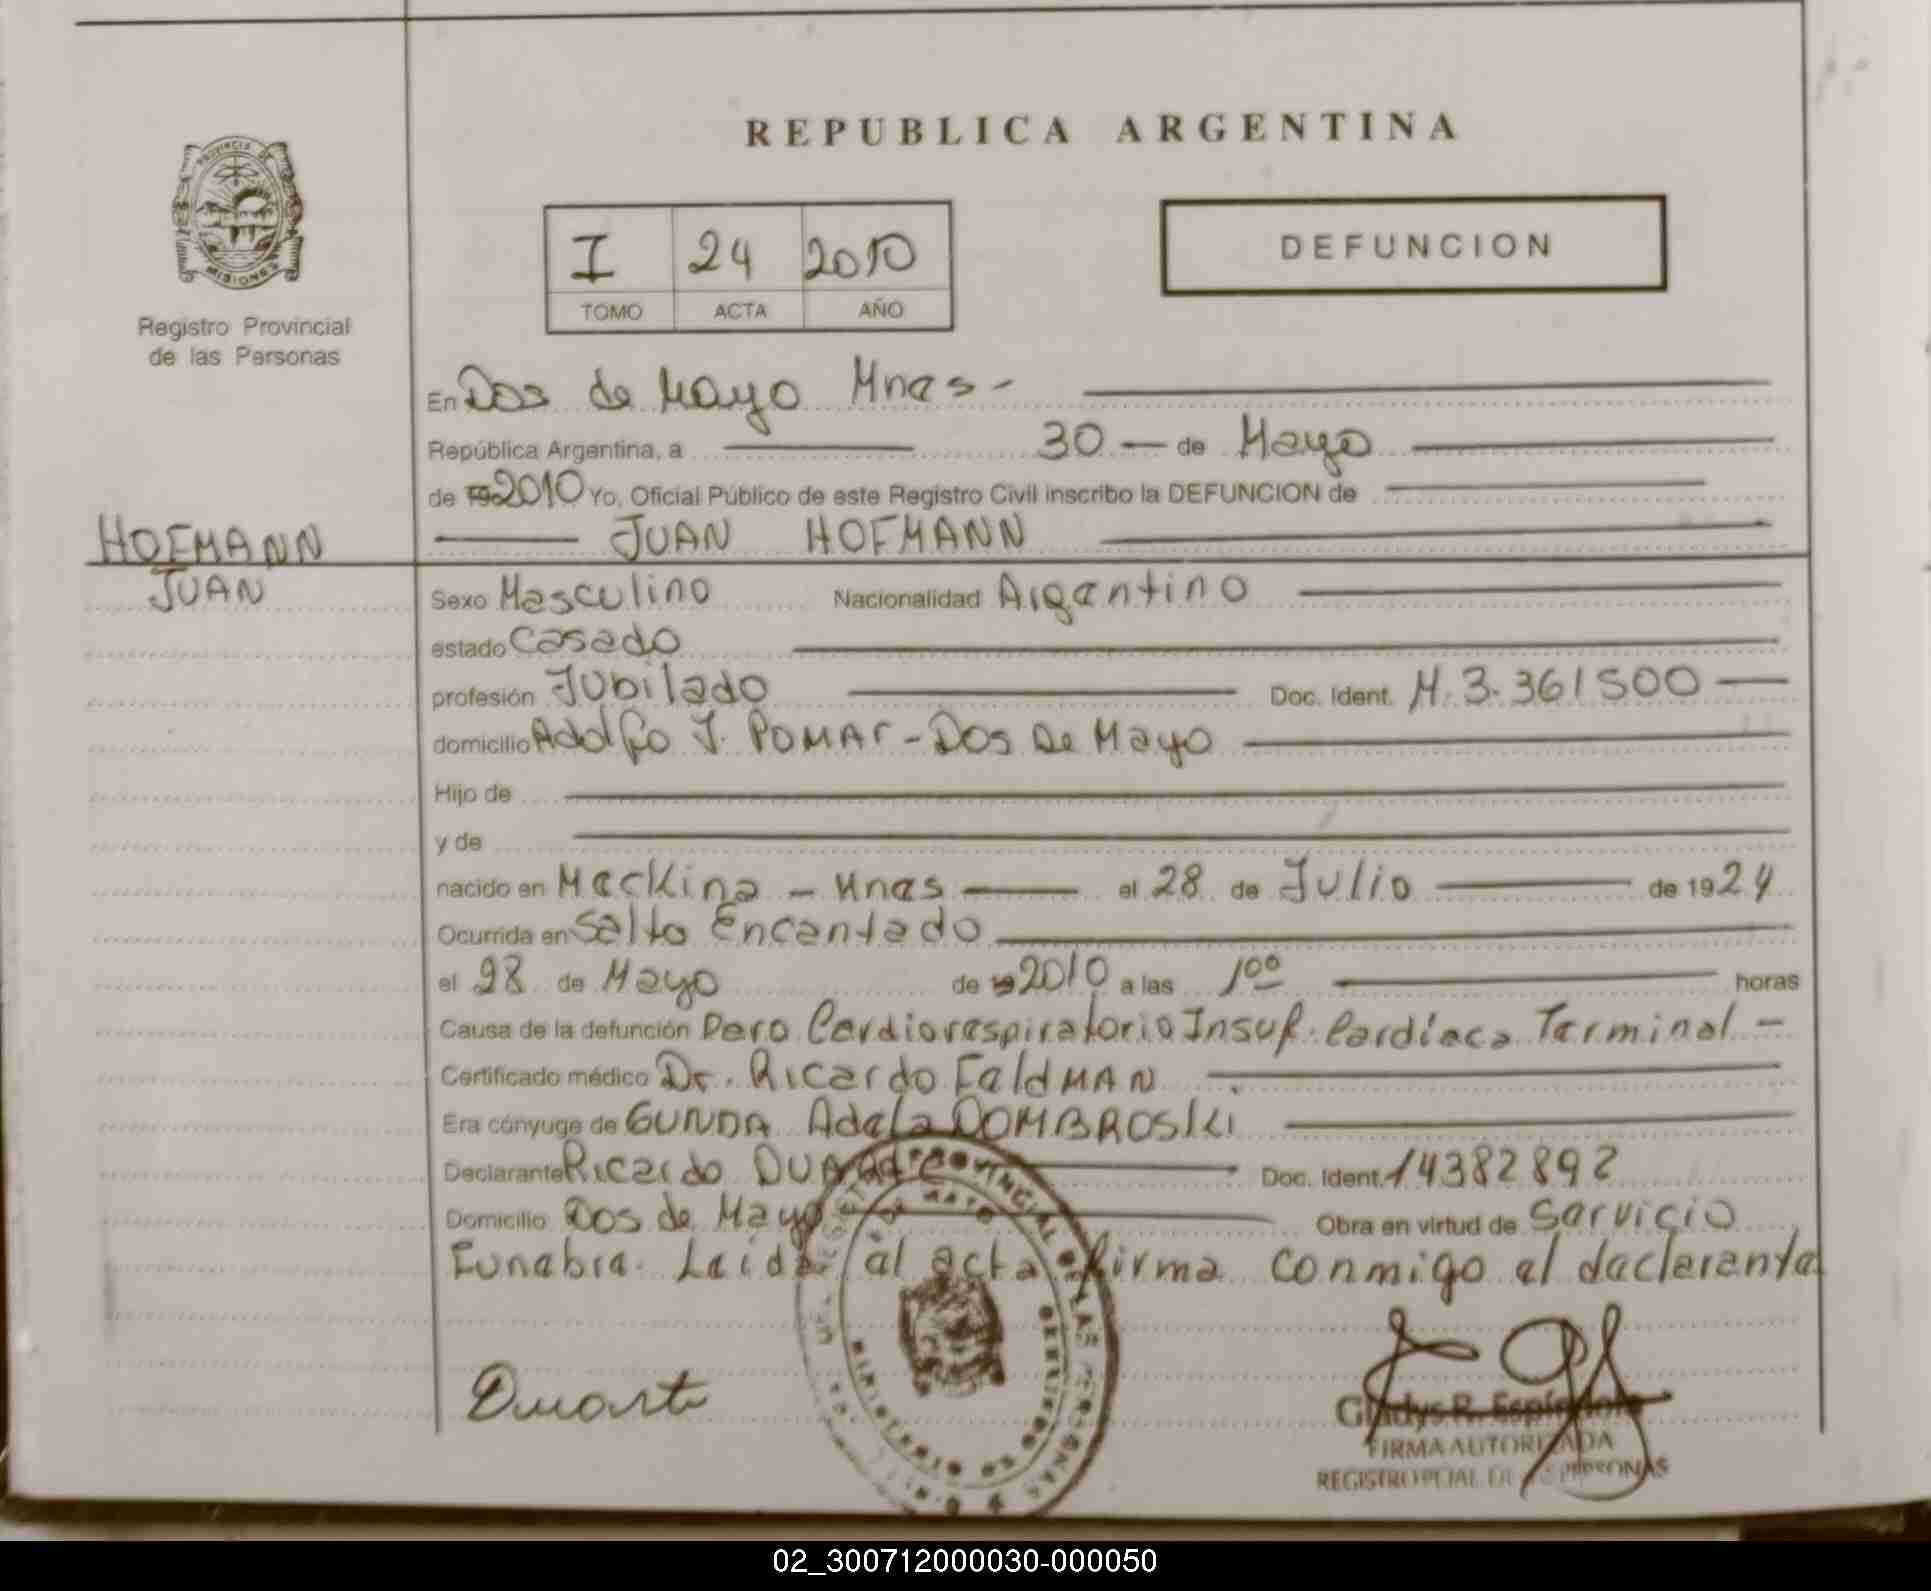 REPUBLICA ARGENTINA
PROVINCIA DE
MISIONES
Registro Provincial
de las Personas
I 24 2010
TOMO ACTA AÑO
DEFUNCION
En Dos de Mayo Mnas -
República Argentina, a 30 — de Mayo
de 2010 Yo, Oficial Público de este Registro Civil inscribo la DEFUNCION de
JUAN HOFMANN
HOFMANN
JUAN
Sexo Masculino Nacionalidad Argentino
estado Casado
profesión Jubilado Doc. Ident. M. 3.361500
domicilio Adolfo J. POMAr - Dos De Mayo
Hijo de
y de
nacido en Mackina - Mnas el 28 de Julio de 1924
Ocurrida en Salto Encantado
el 28 de Mayo de 2010 a las 1ºº horas
Causa de la defunción Paro Cardiorespiratorio Insuf. Cardíaca Terminal -
Certificado médico Dr. Ricardo FeldMAN
Era cónyuge de GUNDA Adela DOMBROSKI
Declarante Ricardo DUARTE Doc. Ident. 14382892
Domicilio Dos de Mayo Obra en virtud de Servicio
Funebre. Leida el acta firma conmigo el declarante
Duarte
Gladys R. Espíndola
FIRMA AUTORIZADA
REGISTRO PCIAL DE LAS PERSONAS
02_300712000030-000050